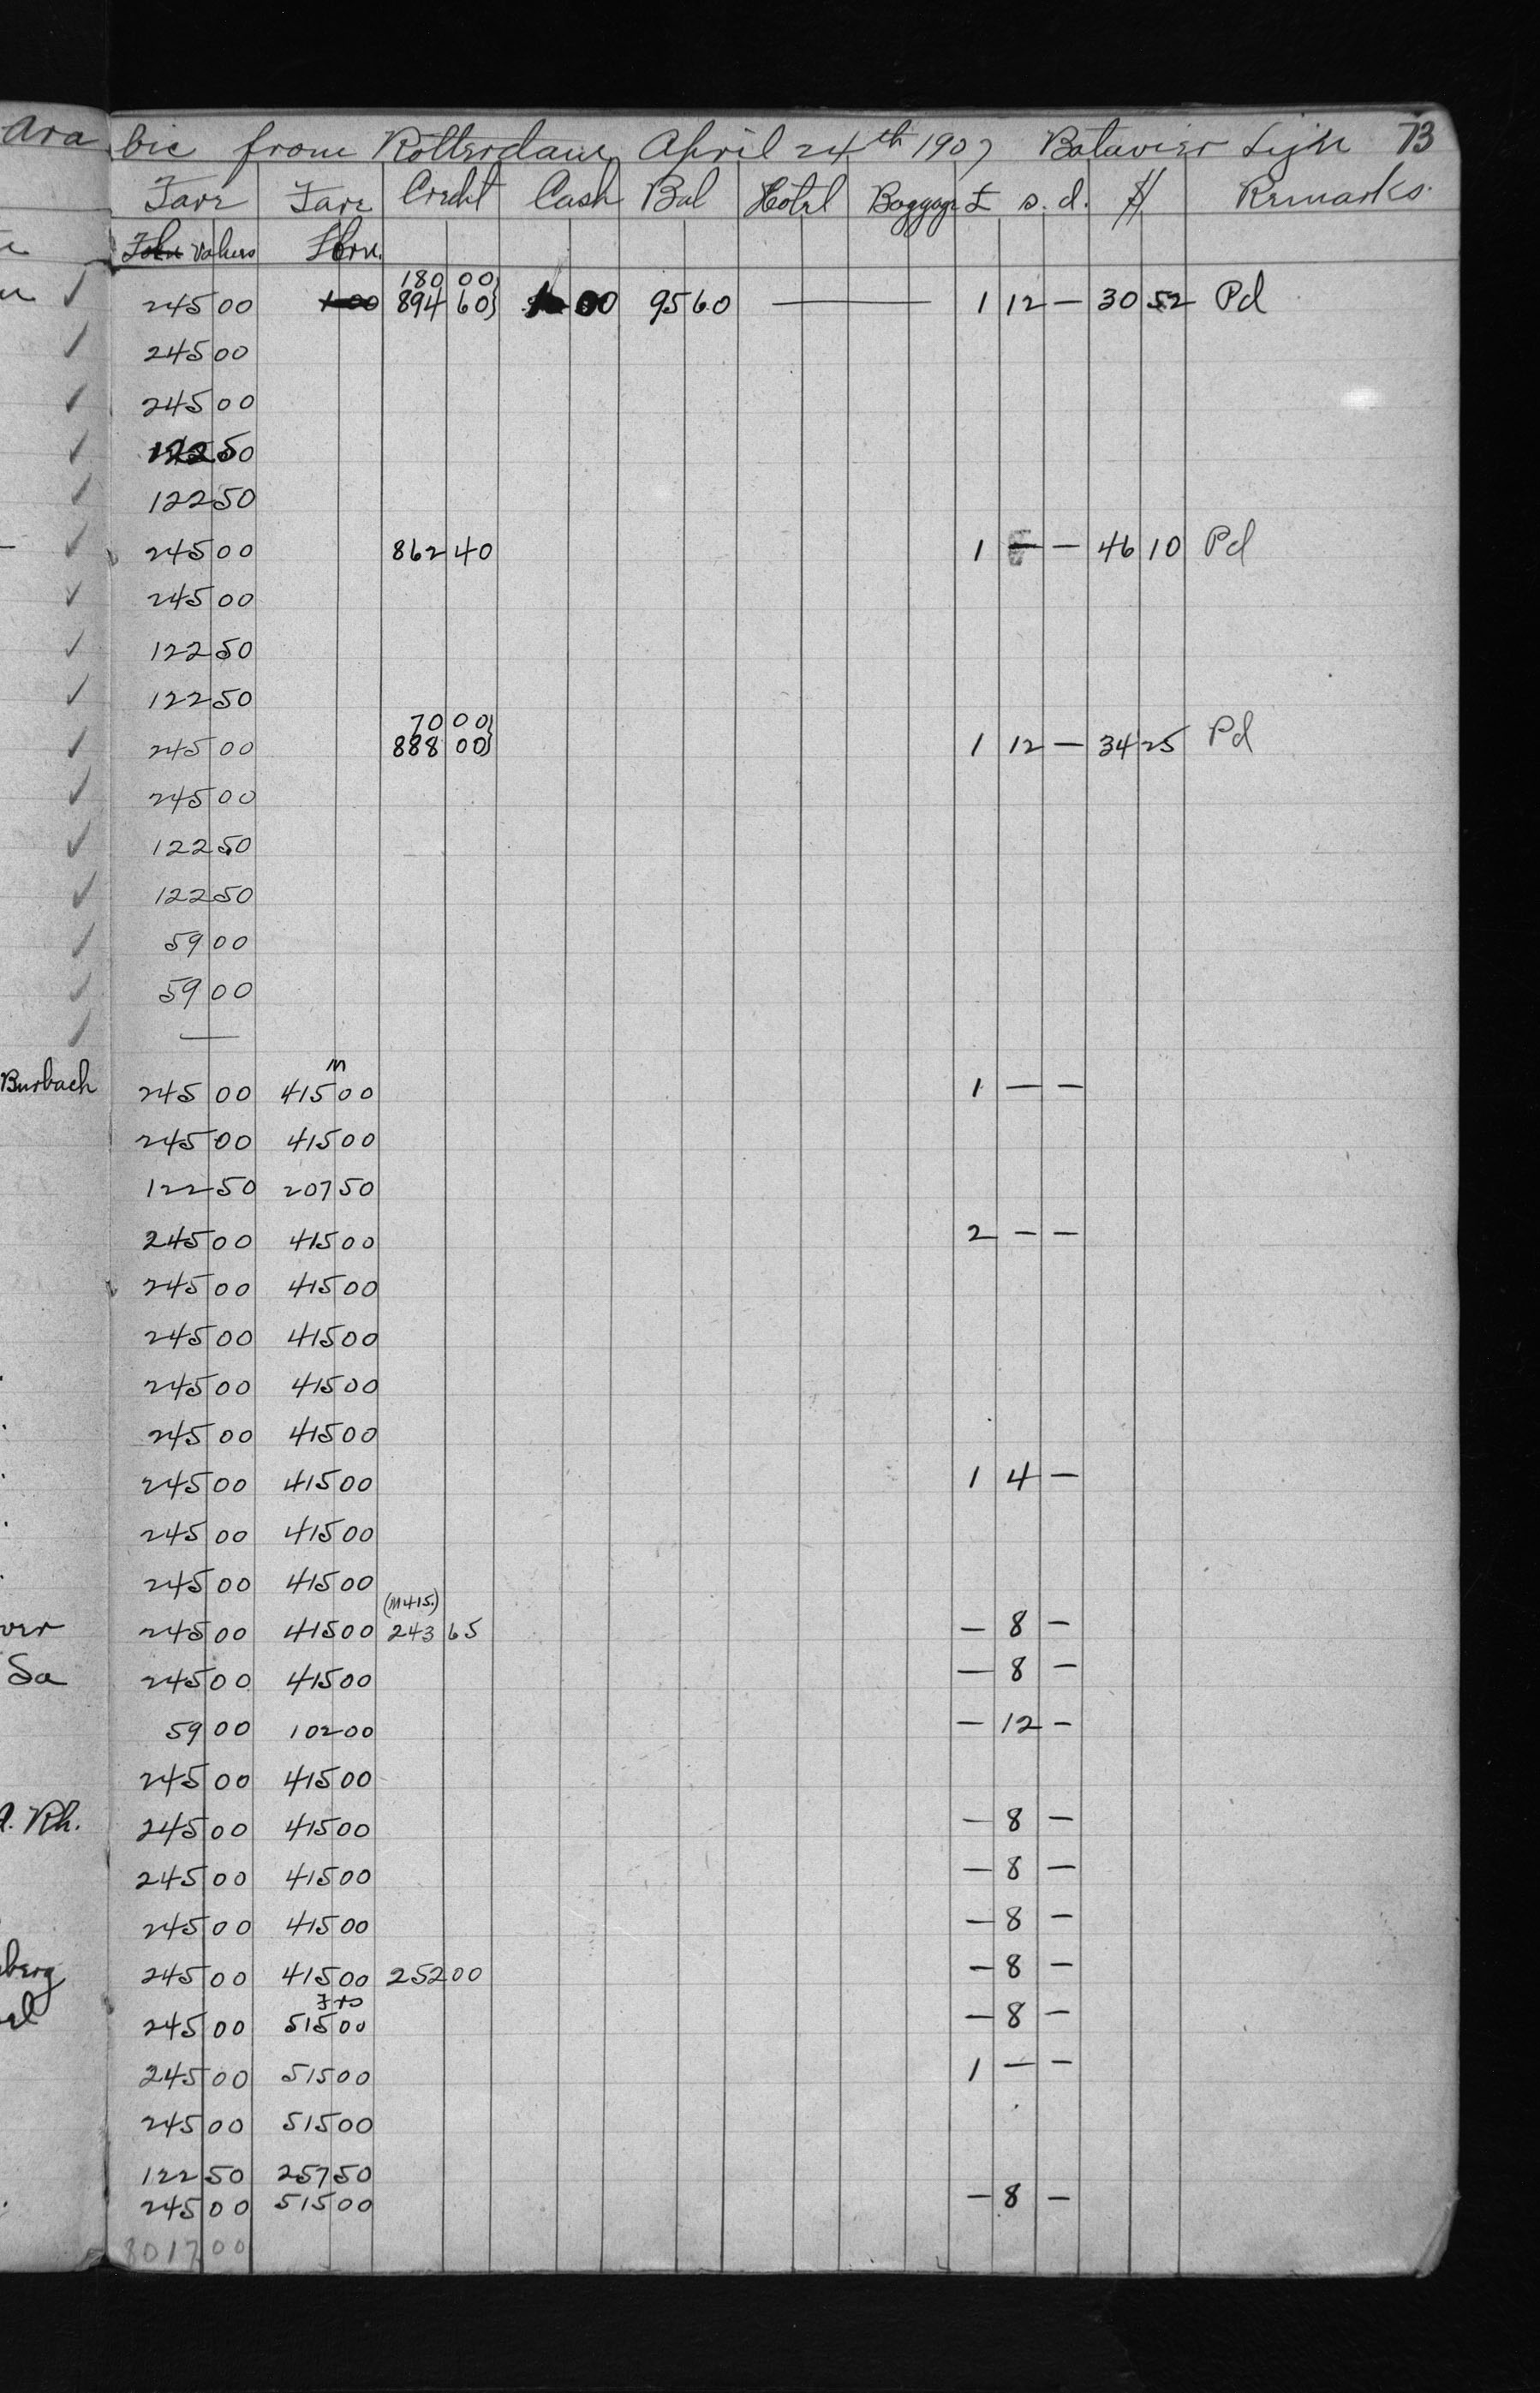 Arabic from Rotterdam, April 24th 1907 Batavier Lijn 73
Fare Fare Credit Cash Bal Hotel Baggage £ s. d. $ Remarks
180 00
245 00 1 00 894 60 00 95 60 1 12 — 30 52 Pd
245 00
245 00
122 50
122 50
245 00 862 40 1 — — 46 10 Pd
245 00
122 50
122 50
70 00
245 00 888 00 1 12 — 34 25 Pd
245 00
122 50
122 50
59 00
59 00
—
M
Burbach 245 00 415 00 1 — —
245 00 415 00
122 50 207 50
245 00 415 00 2 — —
245 00 415 00
245 00 415 00
245 00 415 00
245 00 415 00
245 00 415 00 1 4 —
245 00 415 00
245 00 415 00
(M 415.)
ver 245 00 415 00 243 65 — 8 —
Sa 245 00 415 00 — 8 —
59 00 102 00 — 12 —
245 00 415 00
Rh. 245 00 415 00 — 8 —
245 00 415 00 — 8 —
245 00 415 00 — 8 —
berg 245 00 415 00 252 00 — 8 —
el 245 00 515 00 — 8 —
245 00 515 00 1 — —
245 00 515 00
122 50 257 50
245 00 515 00 — 8 —
8017 00